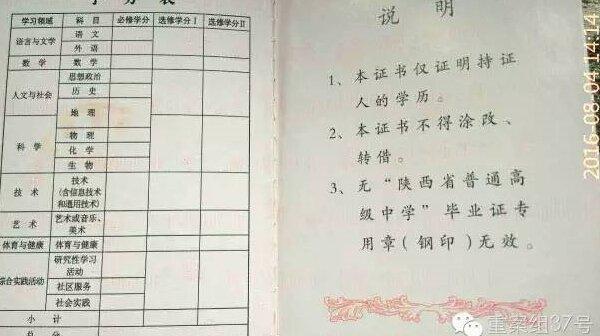 学习领域 科 目 必修学分 选修学分Ⅰ 选修学分Ⅱ
语言与文学 语 文
外 语
数 学 数 学
人文与社会 思想政治
历 史
地 理
科 学
物 理
化 学
生 物
技 术 技术
(含信息技术
和通用技术)
艺 术 艺术或音乐、
美术
体育与健康 体育与健康
综合实践活动 研究性学习
活动
社区服务
社会实践
小 计
总 分
说 明
1、本证书仅证明持证
人的学历。
2、本证书不得涂改、
转借。
3、无“陕西省普通高
级中学”毕业证专
用章(钢印)无效。
2016-08-04 14:14
重案组37号